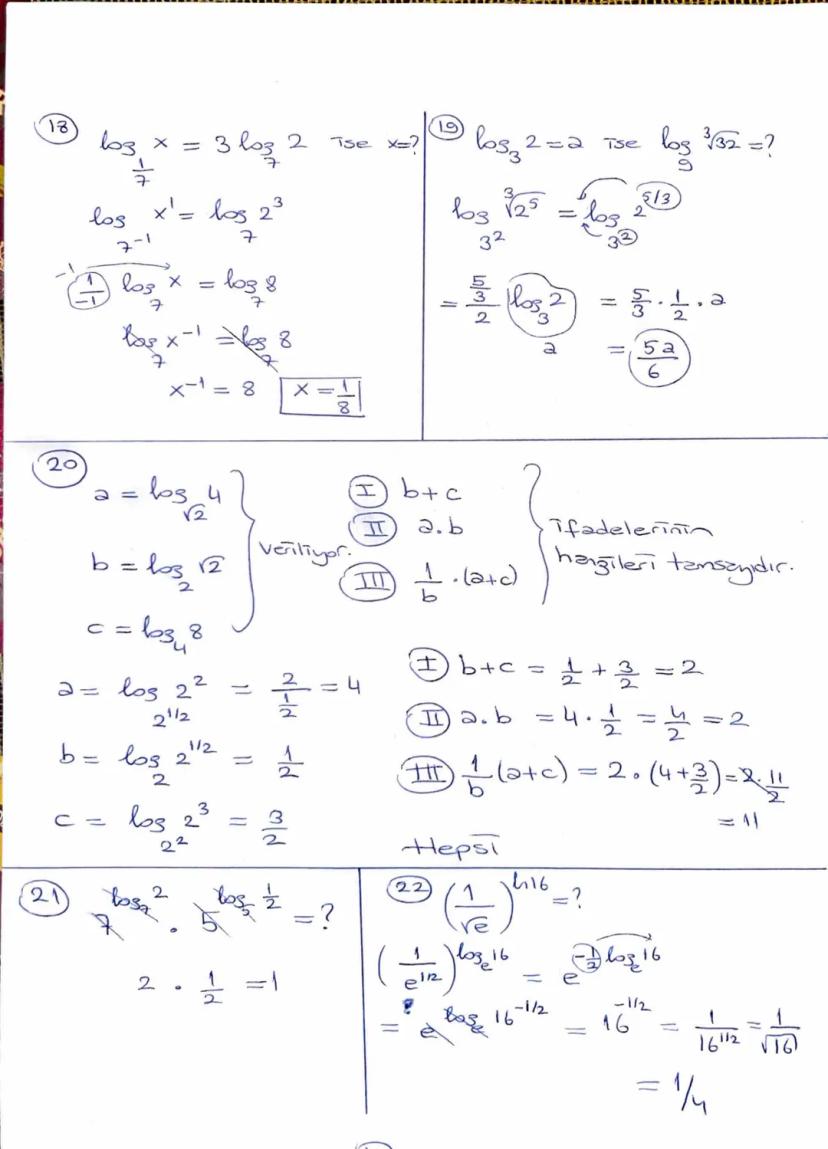 18
log_{1/7} x = 3 log_7 2 ise x=?
log_{7^{-1}} x^1 = log_7 2^3
-1
1/-1 log_7 x = log_7 8
log_7 x^{-1} = log_7 8
x^{-1} = 8 x = 1/8
19
log_3 2 = a ise log_9 ∛32 = ?
log_{3^2} ∛2^5 = log_{3^2} 2^{5/3}
= (5/3)/2 log_3 2 = 5/3 · 1/2 · a
a = 5a/6
20
a = log_{√2} 4
b = log_2 √2
c = log_4 8
veriliyor.
I b+c
II a.b
III 1/b · (a+c)
ifadelerinin
hangileri tamsayıdır.
a = log_{2^{1/2}} 2^2 = 2/(1/2) = 4
b = log_2 2^{1/2} = 1/2
c = log_{2^2} 2^3 = 3/2
I b+c = 1/2 + 3/2 = 2
II a.b = 4 · 1/2 = 4/2 = 2
III 1/b (a+c) = 2 · (4+3/2) = 2 · 11/2
= 11
Hepsi
21
7^{log_7 2} · 5^{log_5 1/2} = ?
2 · 1/2 = 1
22
(1/√e)^{ln16} = ?
(1/e^{1/2})^{log_e 16} = e^{-1/2 log_e 16}
= e^{log_e 16^{-1/2}} = 16^{-1/2} = 1/16^{1/2} = 1/√16
= 1/4